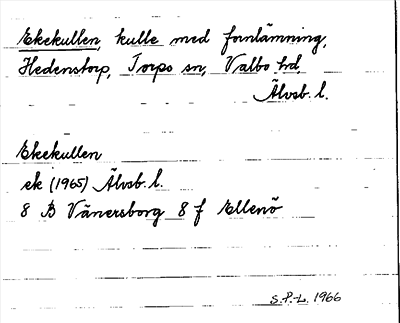 Ekekullen, kulle med fornlämning,
Hedenstorp, Torps sn, Valbo hd,
Älvsb. l.
Ekekullen
ek (1965) Älvsb. l.
8 B Vänersborg 8 f Ellenö
S.P.-L. 1966